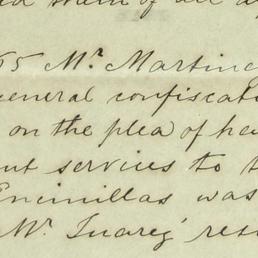 of all
65 Mr. Martin
general confiscat
on the plea of he
services to t
Encinillas was
Mr. Juarez' res